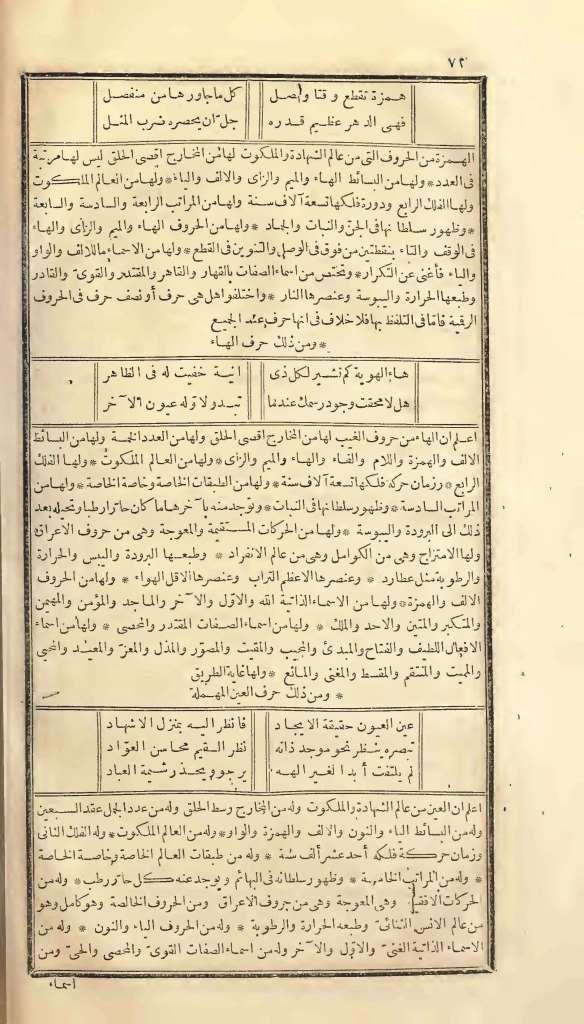 ٧٢
همزة تقطع وقتا وتصل كل ما جاورها من منفصل
فهى الدهر عظيم قدره جل ان يحصره ضرب المثل
الهمزة من الحروف التى من عالم الشهادة والملكوت لها من المخارج اقصى الحلق ليس لها مرتبة
فى العدد * ولها من البسائط الفاء والميم والزاى والالف والياء * ولها من العالم الملكوت
ولها الفلك الرابع ودورة فلكها تسعة آلاف سنة ولها من المراتب الرابعة والسادسة والسابعة
* وظهور سلطانها فى الجن والنبات والجماد * ولها من الحروف الهاء والميم والزاى والهاء
فى الوقف والتاء بنقطتين من فوق فى الوصل والتنوين فى القطع * ولها من الاسماء ما للالف والواو
والياء فأغنى عن التكرار * وتختص من اسماء الصفات بالقهار والقاهر والمقتدر والقوى والقادر
وطبعها الحرارة واليبوسة وعنصرها النار * واختلفوا هل هى حرف أو نصف حرف فى الحروف
الرقمية فاما فى التلفظ بها فلا خلاف فى انها حرف عند الجميع
* ومن ذلك حرف الهاء
هاء الهوية كم تشير لكل ذى انية خفيت له فى الظاهر
هل لا محقت وجود رسمك عندما تبدو لاوله عيون الآخر
اعلم ان الهاء من حروف الغيب لها من المخارج اقصى الحلق ولها من العدد الخمسة ولها من البسائط
الالف والهمزة واللام والفاء والهاء والميم والزاى * ولها من العالم الملكوت * ولها الفلك
الرابع * وزمان حركة فلكها تسعة آلاف سنة * ولها من الطبقات الخاصة وخاصة الخاصة * ولها من
المراتب السادسة * وظهور سلطانها فى النبات * وتوجد منه بآخرها ما كان حارا رطبا وتحيله بعد
ذلك الى البرودة واليبوسة * ولها من الحركات المستقيمة والمعوجة وهى من حروف الاعراق
ولها الامتزاج وهى من الكوامل وهى من عالم الانفراد * وطبعها البرودة واليبس والحرارة
والرطوبة مثل عطارد * وعنصرها الاعظم التراب وعنصرها الاقل الهواء * ولها من الحروف
الالف والهمزة * ولها من الاسماء الذاتية الله والاول والآخر والماجد والمؤمن والمهيمن
والمتكبر والمتين والاحد والملك * ولها من اسماء الصفات المقتدر والمحصى * ولها من اسماء
الافعال اللطيف والفتاح والمبدئ والمجيب والمقيت والمصور والمذل والمعز والمعيد والمحيى
والمميت والمنتقم والمقسط والمغنى والمانع * ولها غاية الطريق
* ومن ذلك حرف العين المهملة
عين العيون حقيقة الايجاد فانظر اليه بمنزل الاشهاد
تبصره ينظر نحو موجد ذاته نظر السقيم محاسن العواد
لم يلتفت أبدا لغير الهه يرجو ويحذر شيمة العباد
اعلم ان العين من عالم الشهادة والملكوت وله من المخارج وسط الحلق وله من عدد الجمل عقد السبعين
وله من البسائط الياء والنون والالف والهمزة والواو * وله من العالم الملكوت * وله الفلك الثانى
وزمان حركة فلكه أحد عشر ألف سنة * وله من طبقات العالم الخاصة وخاصة الخاصة
* وله من المراتب الخامسة * وظهور سلطانه فى البهائم ويوجد عنه كل حار رطب * وله من
الحركات الافقية وهى المعوجة وهى من حروف الاعراق ومن الحروف الخالصة وهو كامل وهو
من عالم الانس الثنائى * وطبعه الحرارة والرطوبة * وله من الحروف الياء والنون * وله من
الاسماء الذاتية الغنى والاول والآخر وله من اسماء الصفات القوى والمحصى والحى ومن
اسماء